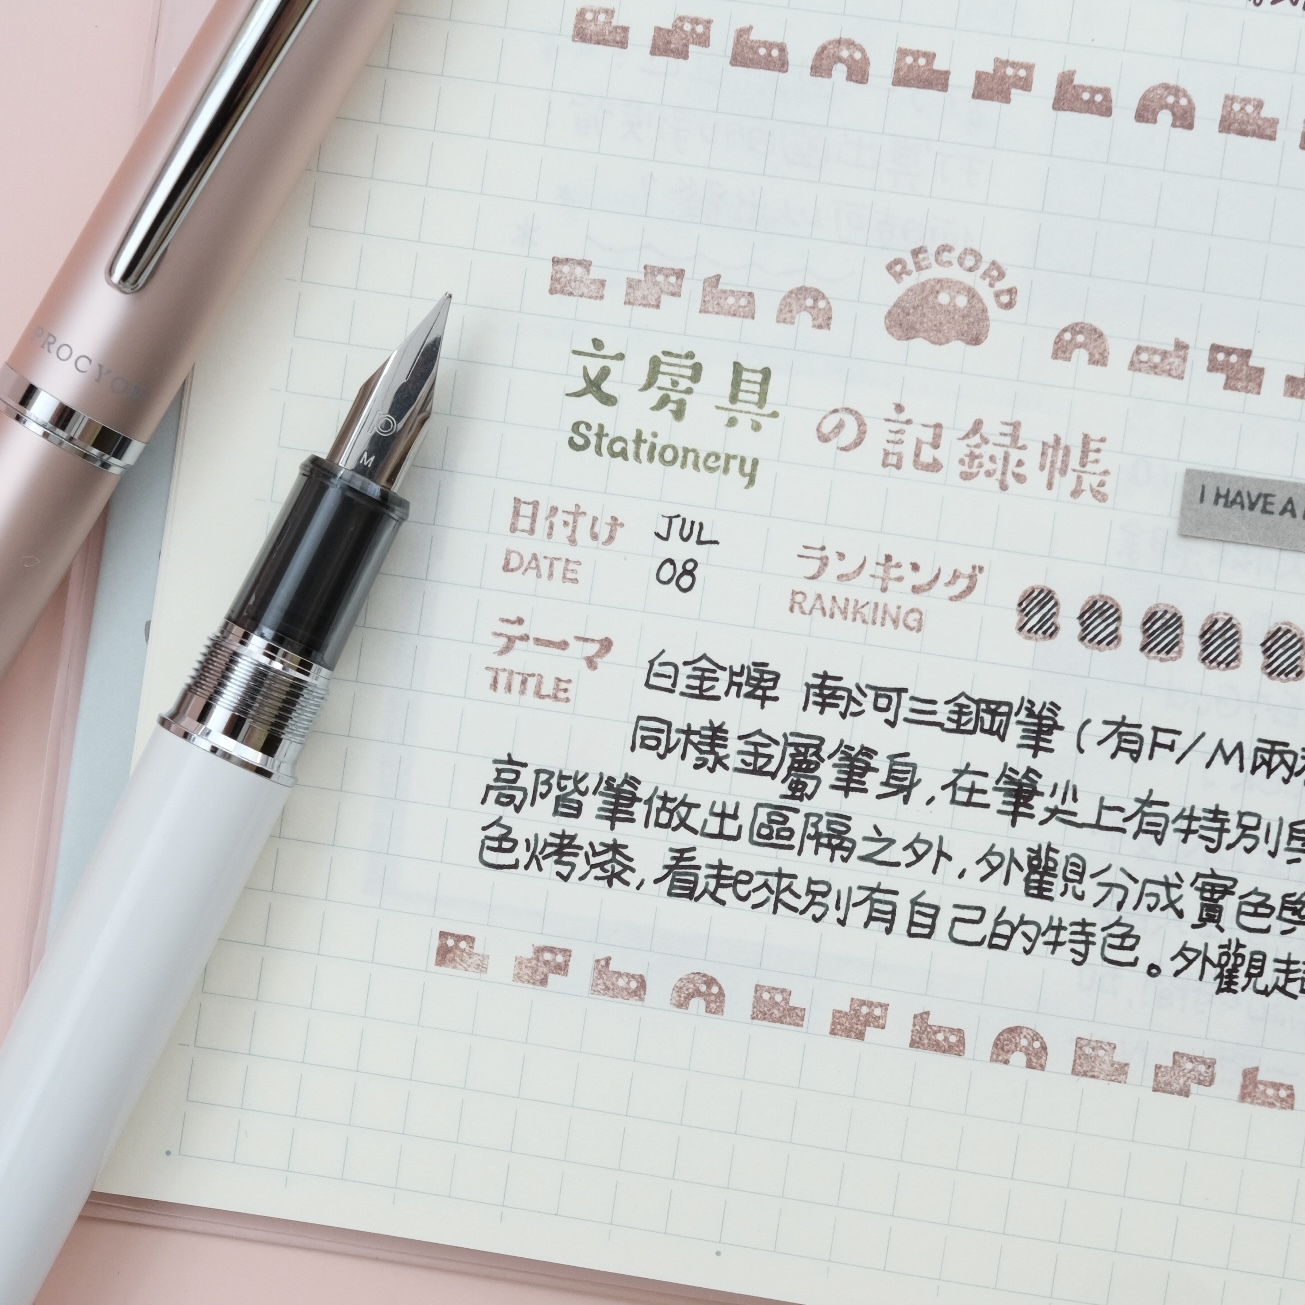 PROCYON
P
M
RECORD
文房具 の記録帳
Stationery
I HAVE A
日付け JUL
DATE 08
ランキング
RANKING
テーマ
TITLE
白金牌 南河三鋼筆 (有F/M兩
同樣金屬筆身,在筆尖上有特別與
高階筆做出區隔之外,外觀分成實色與
色烤漆,看起來別有自己的特色。外觀起